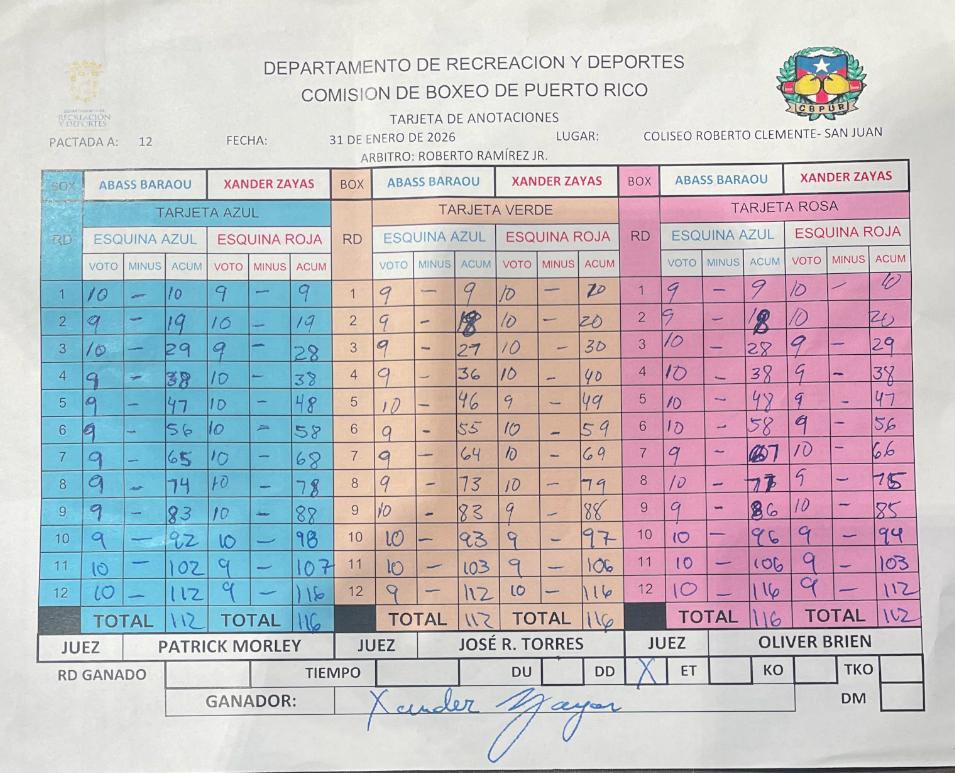 DEPARTAMENTO DE RECREACION Y DEPORTES
COMISION DE BOXEO DE PUERTO RICO
RECREACIÓN
Y DEPORTES
CBPUR
TARJETA DE ANOTACIONES
PACTADA A: 12 FECHA: 31 DE ENERO DE 2026 LUGAR: COLISEO ROBERTO CLEMENTE- SAN JUAN
ARBITRO: ROBERTO RAMÍREZ JR.
BOX ABASS BARAOU XANDER ZAYAS BOX ABASS BARAOU XANDER ZAYAS BOX ABASS BARAOU XANDER ZAYAS
TARJETA AZUL TARJETA VERDE TARJETA ROSA
RD ESQUINA AZUL ESQUINA ROJA RD ESQUINA AZUL ESQUINA ROJA RD ESQUINA AZUL ESQUINA ROJA
VOTO MINUS ACUM VOTO MINUS ACUM VOTO MINUS ACUM VOTO MINUS ACUM VOTO MINUS ACUM VOTO MINUS ACUM
1 10 – 10 9 – 9 1 9 – 9 10 – 10 1 9 – 9 10 – 10
2 9 – 19 10 – 19 2 9 – 18 10 – 20 2 9 – 18 10 20
3 10 – 29 9 – 28 3 9 – 27 10 – 30 3 10 – 28 9 – 29
4 9 – 38 10 – 38 4 9 – 36 10 – 40 4 10 – 38 9 – 38
5 9 – 47 10 – 48 5 10 – 46 9 – 49 5 10 – 48 9 – 47
6 9 – 56 10 – 58 6 9 – 55 10 – 59 6 10 – 58 9 – 56
7 9 – 65 10 – 68 7 9 – 64 10 – 69 7 9 – 67 10 – 66
8 9 – 74 10 – 78 8 9 – 73 10 – 79 8 10 – 77 9 – 75
9 9 – 83 10 – 88 9 10 – 83 9 – 88 9 9 – 86 10 – 85
10 9 – 92 10 – 98 10 10 – 93 9 – 97 10 10 – 96 9 – 94
11 10 – 102 9 – 107 11 10 – 103 9 – 106 11 10 – 106 9 – 103
12 10 – 112 9 – 116 12 9 – 112 10 – 116 12 10 – 116 9 – 112
TOTAL 112 TOTAL 116 TOTAL 112 TOTAL 116 TOTAL 116 TOTAL 112
JUEZ PATRICK MORLEY JUEZ JOSÉ R. TORRES JUEZ OLIVER BRIEN
RD GANADO TIEMPO DU DD X ET KO TKO
GANADOR: Xander Zayas DM